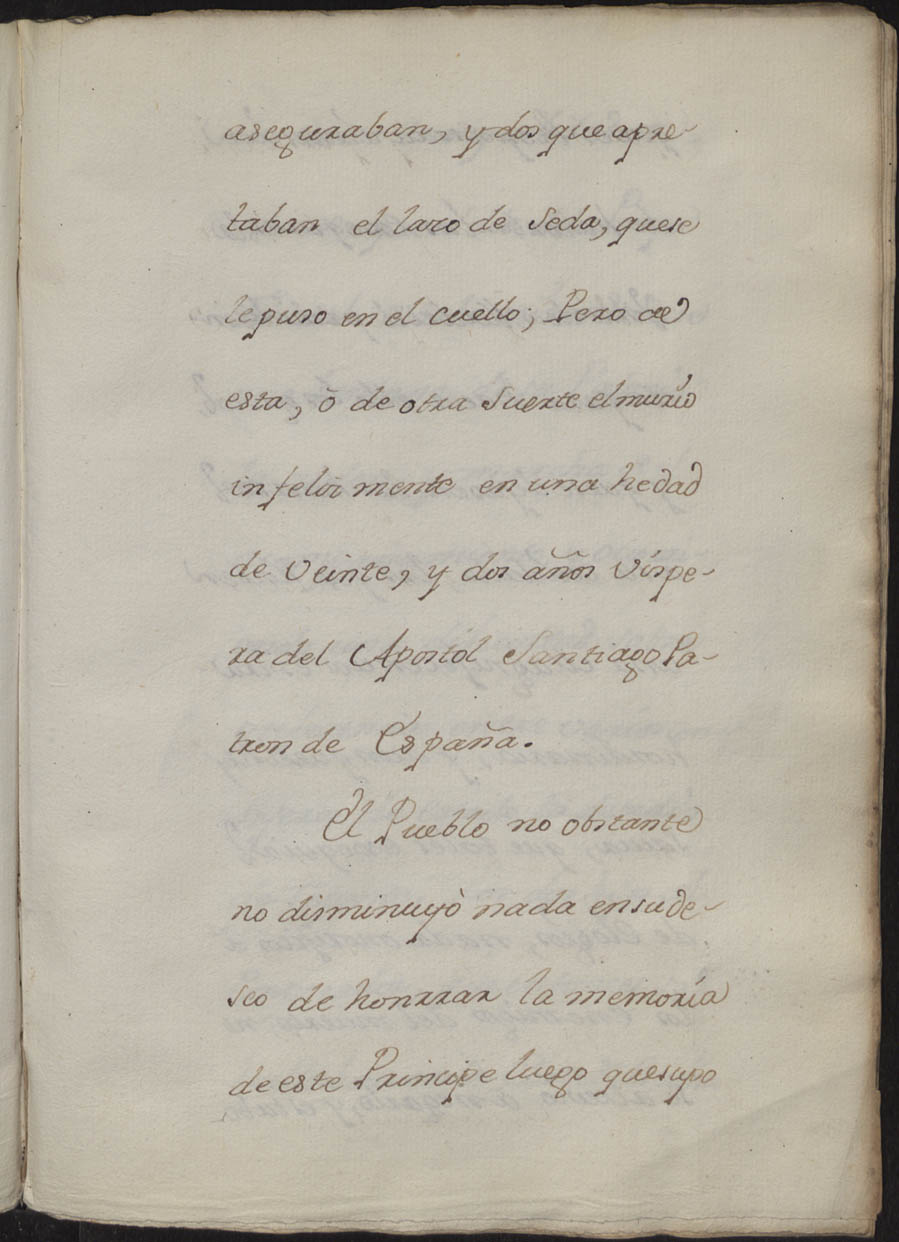 aseguraban, y dos que apre-
taban el lazo de seda, quese
lepuso en el cuello; Pero de
esta, ò de otra Suerte el muríò
infelizmente en una hedad
de Veinte, y dos años Víspe-
ra del Apostól Santiago Pa-
tron de España.
El Pueblo no obstante
no disminuyò nada ensude-
seo de honrrar la memoría
de este Principe luego quesupo